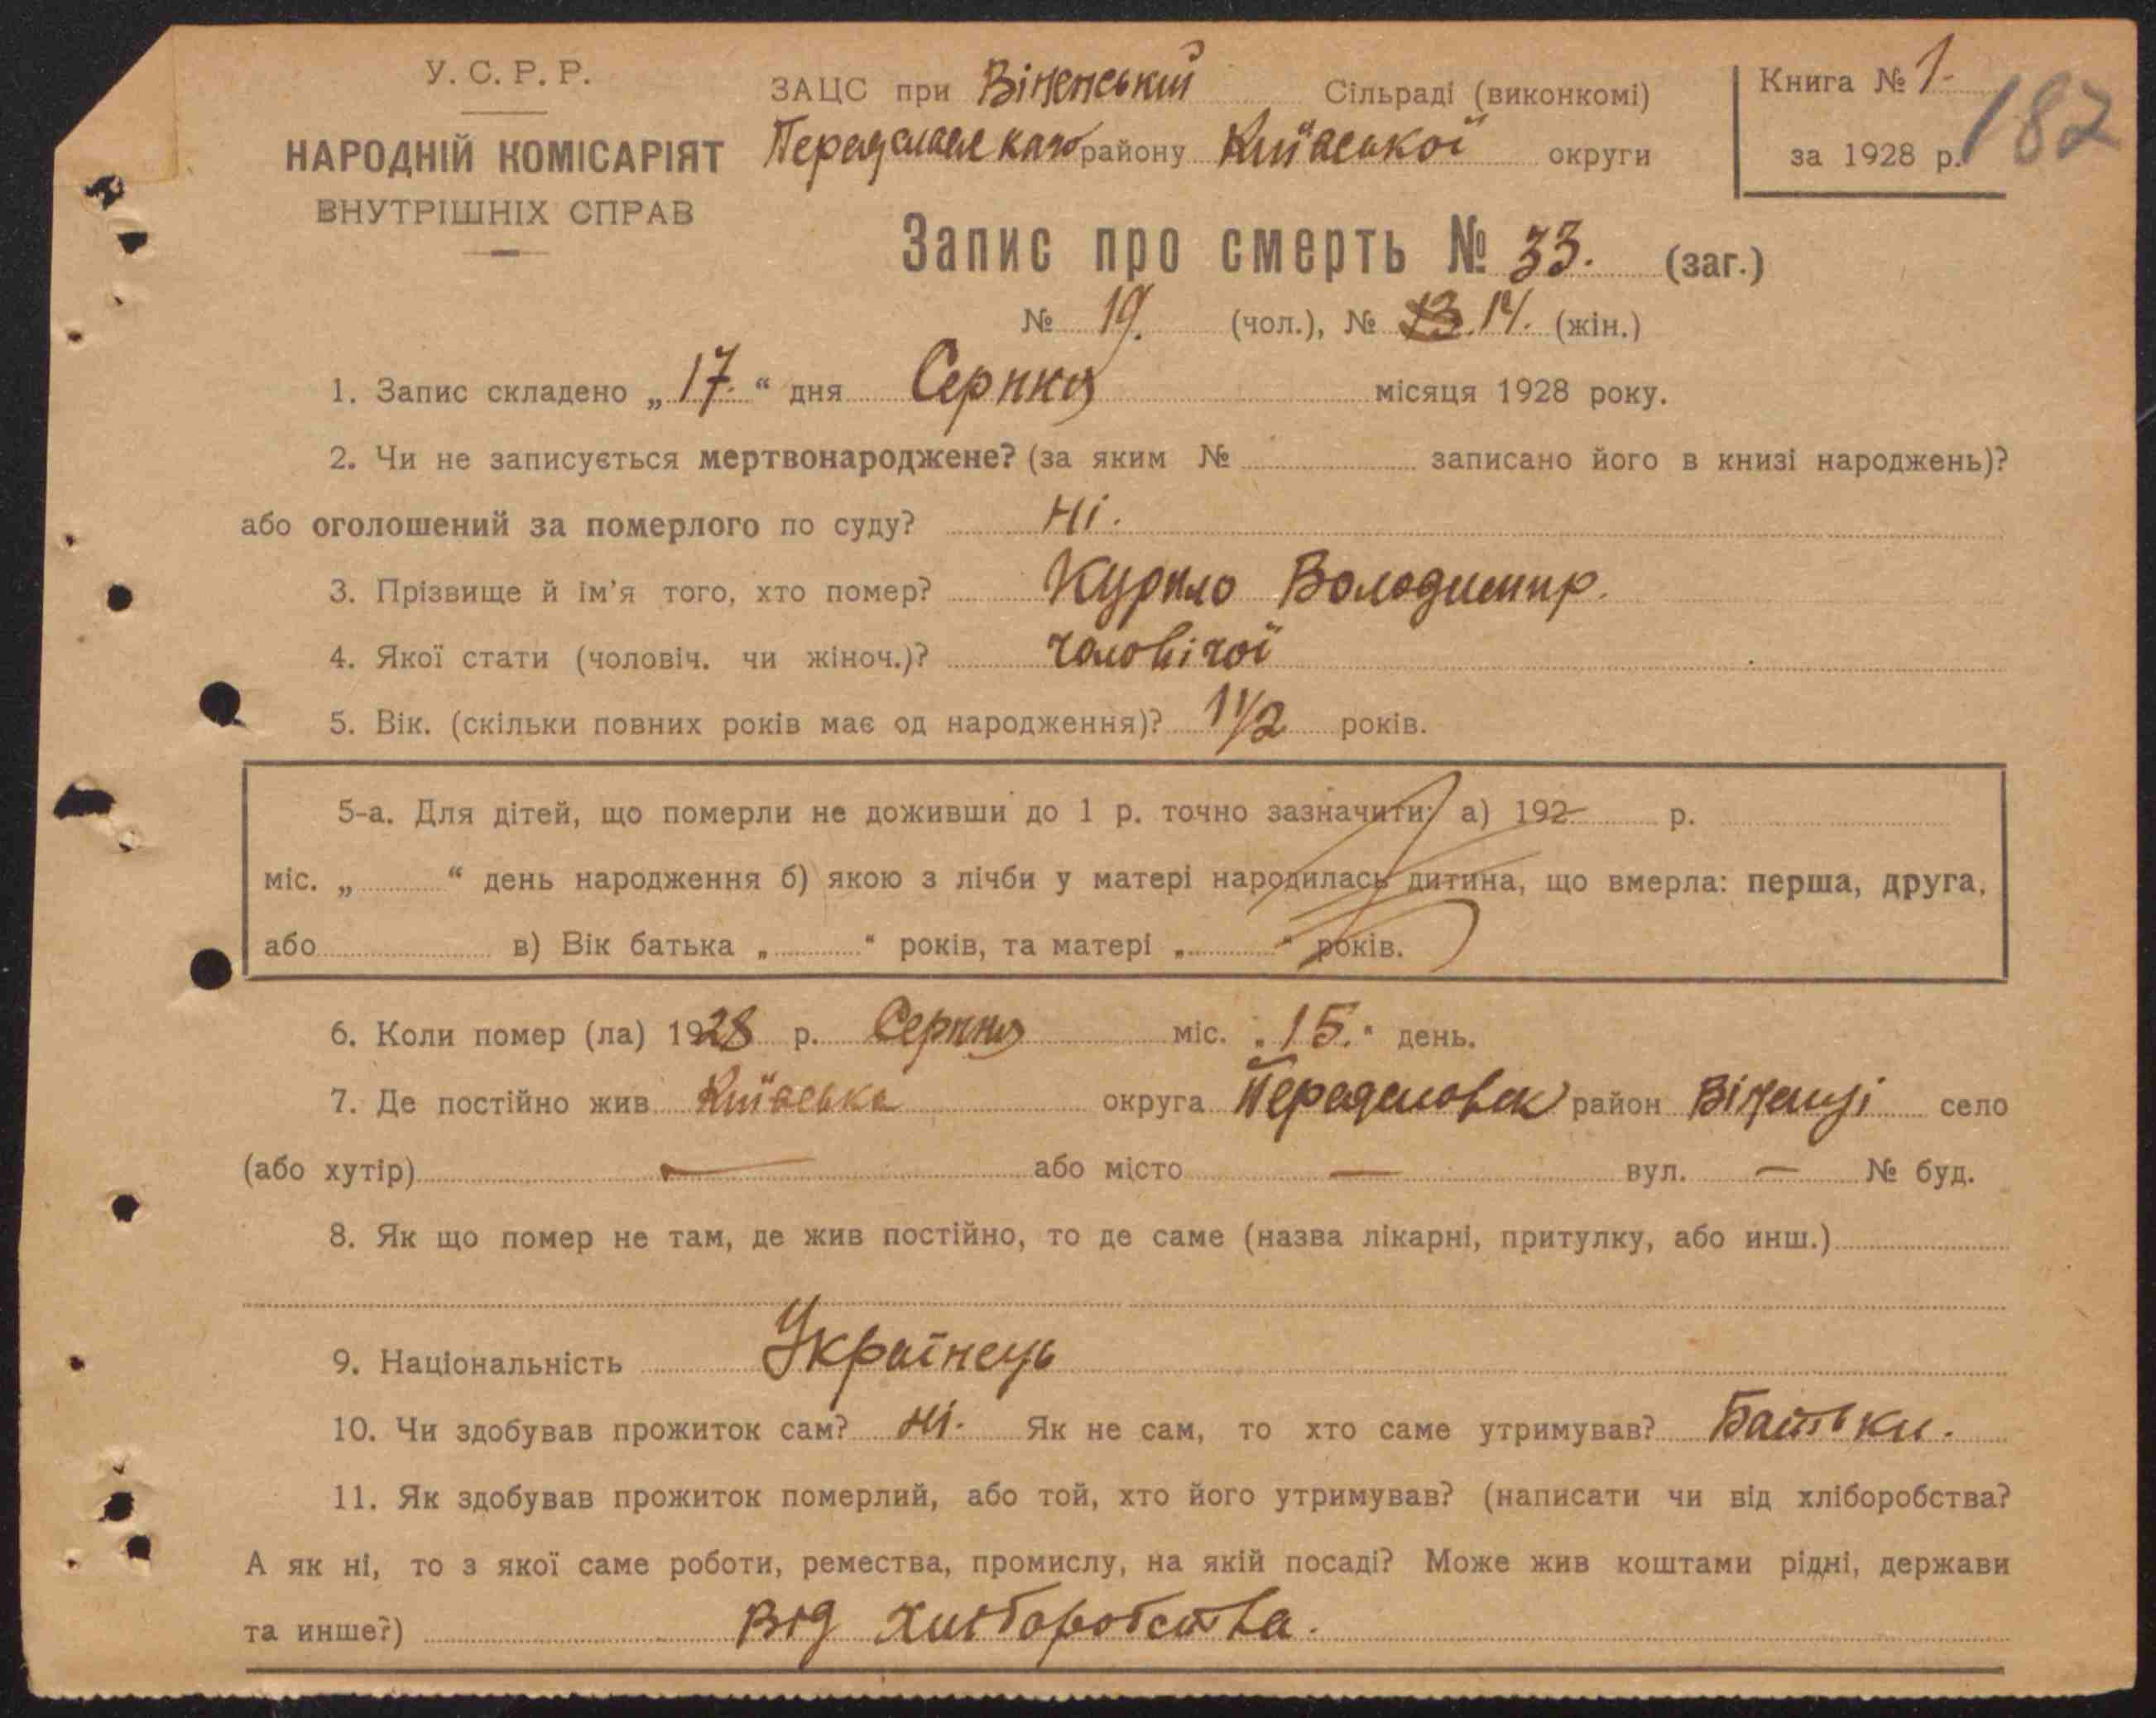 У. С. Р. Р.
НАРОДНІЙ КОМІСАРІЯТ
ВНУТРІШНІХ СПРАВ
ЗАЦС при Віненський Сільраді (виконкомі)
району Київської округи
Книга № 1.
за 1928 р.
182
Запис про смерть № 33. (заг.)
№ 19. (чол.), № 13. 14. (жін.)
1. Запис складено „ 17. “ дня Серпня місяця 1928 року.
2. Чи не записується мертвонароджене? (за яким № записано його в книзі народжень)?
або оголошений за померлого по суду? Ні.
3. Прізвище й ім'я того, хто помер? Курило Володимир.
4. Якої стати (чоловіч. чи жіноч.)? чоловічої
5. Вік. (скільки повних років має од народження)? 1 1/2 років.
5-а. Для дітей, що померли не доживши до 1 р. точно зазначити: а) 192 р.
міс. „ “ день народження б) якою з лічби у матері народилась дитина, що вмерла: перша, друга,
або в) Вік батька „ “ років, та матері „ “ років.
6. Коли помер (ла) 1928 р. Серпня міс. „ 15. “ день.
7. Де постійно жив Київська округа район село
(або хутір) — або місто — вул. — № буд.
8. Як що помер не там, де жив постійно, то де саме (назва лікарні, притулку, або инш.)
9. Національність Українець
10. Чи здобував прожиток сам? Ні. Як не сам, то хто саме утримував? Батьки.
11. Як здобував прожиток померлий, або той, хто його утримував? (написати чи від хліборобства?
А як ні, то з якої саме роботи, ремества, промислу, на якій посаді? Може жив коштами рідні, держави
та инше?) Від хліборобства.